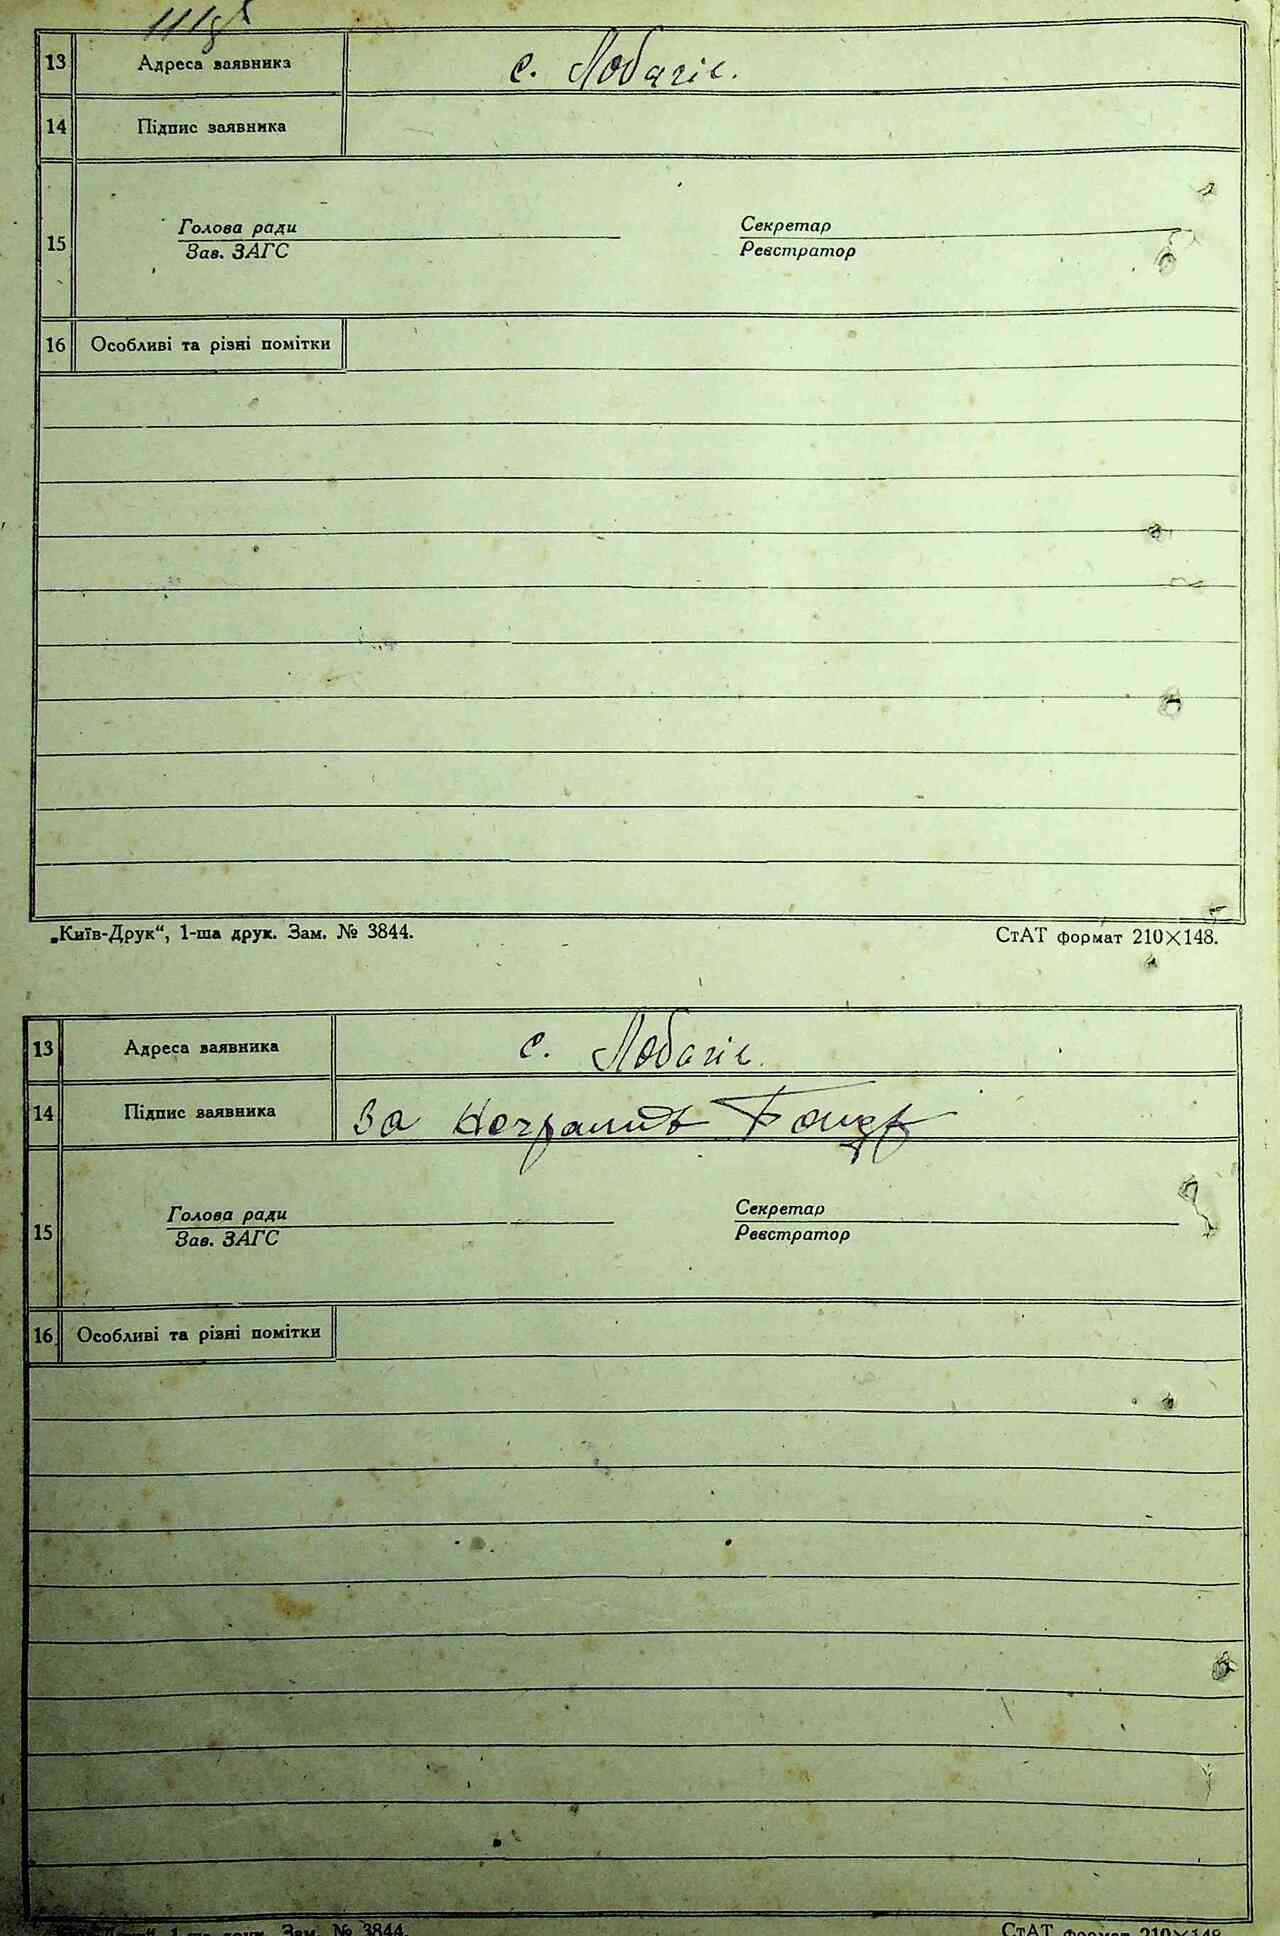 13 Адреса заявника с. Лобачів.
14 Підпис заявника
15 Голова ради Секретар
Зав. ЗАГС Реєстратор
16 Особливі та різні помітки
„Київ-Друк“, 1-ша друк. Зам. № 3844. СтАТ формат 210×148.
13 Адреса заявника с. Лобачів.
14 Підпис заявника За
15 Голова ради Секретар
Зав. ЗАГС Реєстратор
16 Особливі та різні помітки
1-ша друк. Зам. № 3844. СтАТ формат 210×148